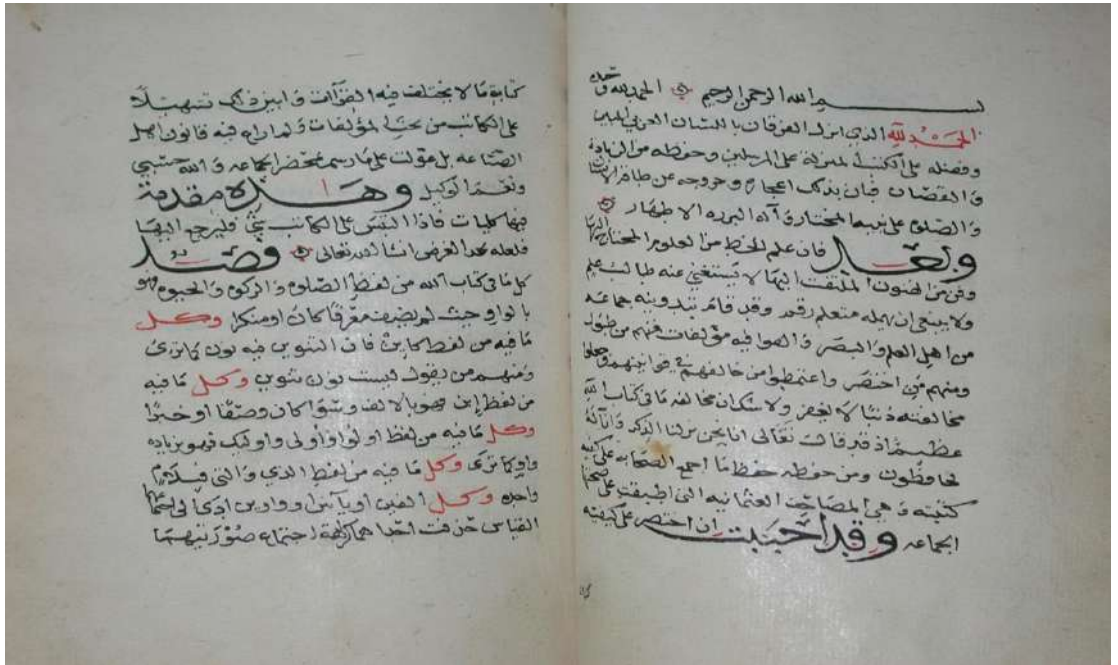 بسم الله الرحمن الرحيم الحمد لله وحده
الحمد لله الذي انزل الفرقان باللسان العربي المبين
وفضله على الكتب المنزلة على المرسلين وحفظه من الزيادة
والنقصان فبان بذلك اعجازه وخروجه عن طاقة الانسان
والصلوة على نبينا المختار وآله البررة الاطهار
وبعد فان علم الخط من العلوم المحتاج اليها
وفن من الفنون الملتفت اليها لا يستغني عنه طالب علم
ولا ينبغي ان يهمله متعلم رقم وقد قام بتدوينه جماعة
من اهل العلم والبصر والفوا فيه مؤلفات فمنهم من طول
ومنهم من اختصر واعتمطوا من خالفهم في قوانينهم وجعلوا
مخالفته ذنبا لا يغفر ولا سكان مخالفه ما في كتاب الله
عظيم اذ قد قال تعالى انا نحن نزلنا الذكر وانا له
لحافظون ومن حفظه حفظ ما اجمع الصحابة على كتبه
كتبته وهي المصاحف العثمانيه التي اطبقت على صحتها
الجماعه وقد احببت ان اختصر على كيفية
كتابة ما لا يختلف فيه القرآات وابين ذلك تسهيلا
على الكاتب من بحث المؤلفات ولم اراع فيه قانون اهل
الصناعه بل عولت على ما رسم بمحضر الجماعه والله حسبي
ونعم الوكيل وهذه مقدمة
فيها كليات فاذا التبس على الكاتب شي فليرجع اليها
فلعله يجد الغرض ان شا الله تعالى وصد
كل ما في كتاب الله من لفظ الصلوه والزكوه والحيوه فهو
بالواو حيث لم يضف معرفا كان او منكرا وكل
ما فيه من لفظ كاين فان التنوين فيه نون كما ترى
ومنهم من يقول ليست نون تنوين وكل ما فيه
من لفظ ابن فهو بالالف وسوا كان وصفا او خبرا
وكل ما فيه من لفظ اولوا واولي واوليك فهو بزياده
واو كما ترى وكل ما فيه من لفظ الذي والتي فبلام
واحده وكل الفين او يآين او واوين ادى الى اجتماعهما
القياس حذفت احداهما كراهة اجتماع صورتيهما